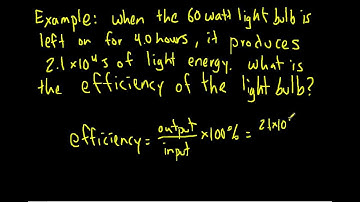 Example: when the 60 watt light bulb is
left on for 4.0 hours, it produces
2.1×10⁴ J of light energy. what is
the efficiency of the light bulb?
efficiency = output/input ×100% = 2.1×10